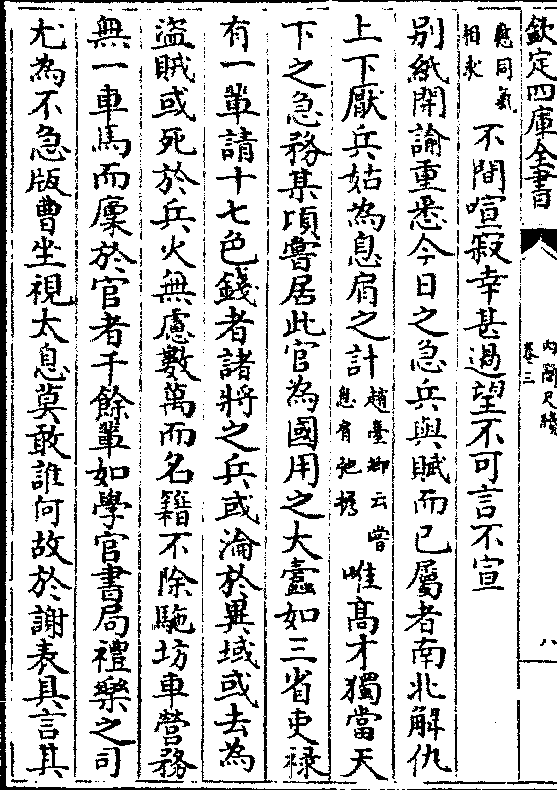 欽定四庫全書
內簡尺牘
卷三
八
應同氣
相求
不間喧寂幸甚過望不可言不宣
別紙開諭重悉今日之急兵與賦而已屬者南北解仇
上下厭兵姑為息肩之計
趙臺卿云嘗
息肩弛擔
唯髙才獨當天
下之急務某項嘗居此官為國用之大蠧如三省吏禄
有一軰請十七色錢者諸將之兵或淪於異域或去為
盜賊或死於兵火無慮數萬而名籍不除駞坊車營務
無一車馬而廩於官者千餘軰如學官書局禮樂之司
尤為不急版曹坐視太息莫敢誰何故於謝表具言其